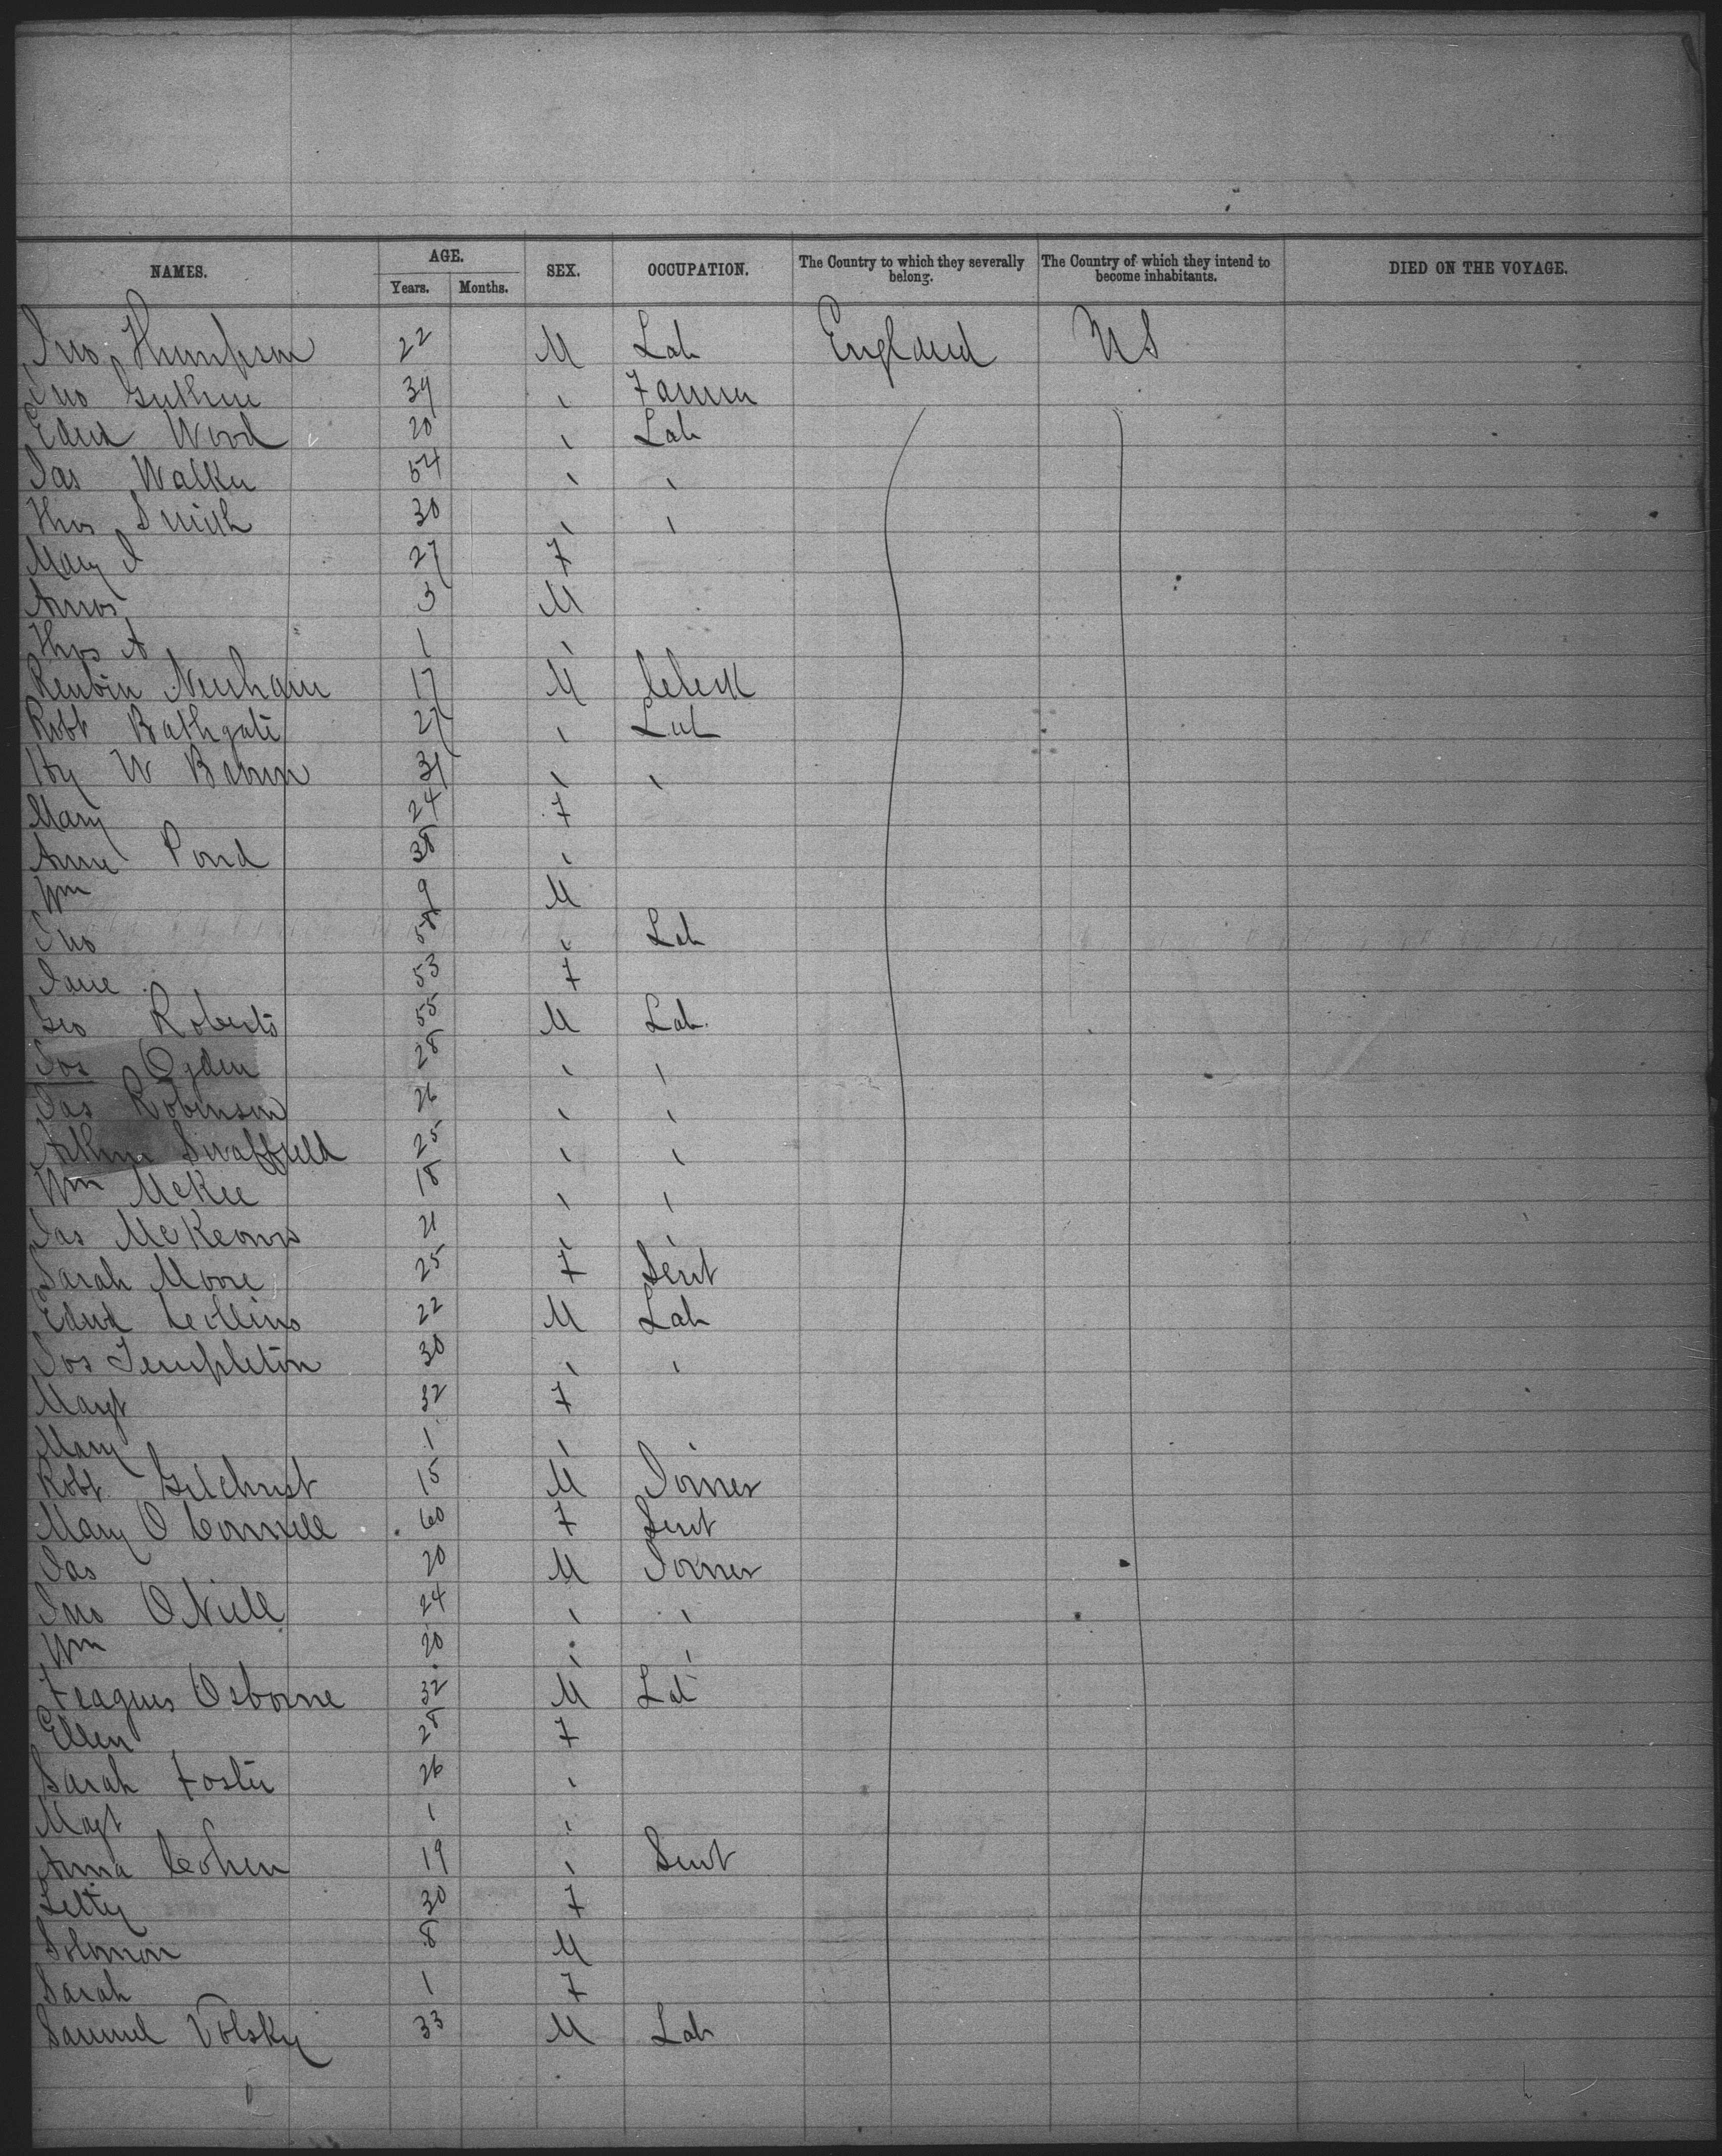 NAMES. AGE. SEX. OCCUPATION. The Country to which they severally belong. The Country of which they intend to become inhabitants. DIED ON THE VOYAGE.
Years. Months.
Jno Thompson 22 M Lab England US
Jno Guthrie 39 " Farmer
Edwd Wood 20 " Lab
Jas Walker 54 " "
Thos Smith 30 " "
Mary J 27 F
Amos 3 M
Thos A 1 "
Reubin Newham 17 M Clerk
Robt Bathgate 27 " Lab
Hy W Brown 31 " "
Mary 24 F
Anne Pond 38 "
Wm 9 M
Jno 58 " Lab
Jane 53 F
Geo Roberts 55 M Lab
Jos Ogden 28 " "
Jas Robinson 26 " "
Arthur Swaffield 25 " "
Wm McKee 18 " "
Jas McKeown 21 " "
Sarah Moore 25 F Servt
Edwd Collins 22 M Lab
Jos Templeton 30 " "
Margt 32 F
Mary 1 " "
Robt Gilchrist 15 M Joiner
Mary O Connell 60 F Servt
Jas 20 M Joiner
Jno O Niell 24 " "
Wm 20 " "
Feagus Osborne 32 M Lab
Ellen 28 F
Sarah Foster 26 "
Magt 1 "
Anna Cohen 19 " Servt
Letty 30 F
Solomon 8 M
Sarah 1 F
Samuel Volsky 33 M Lab